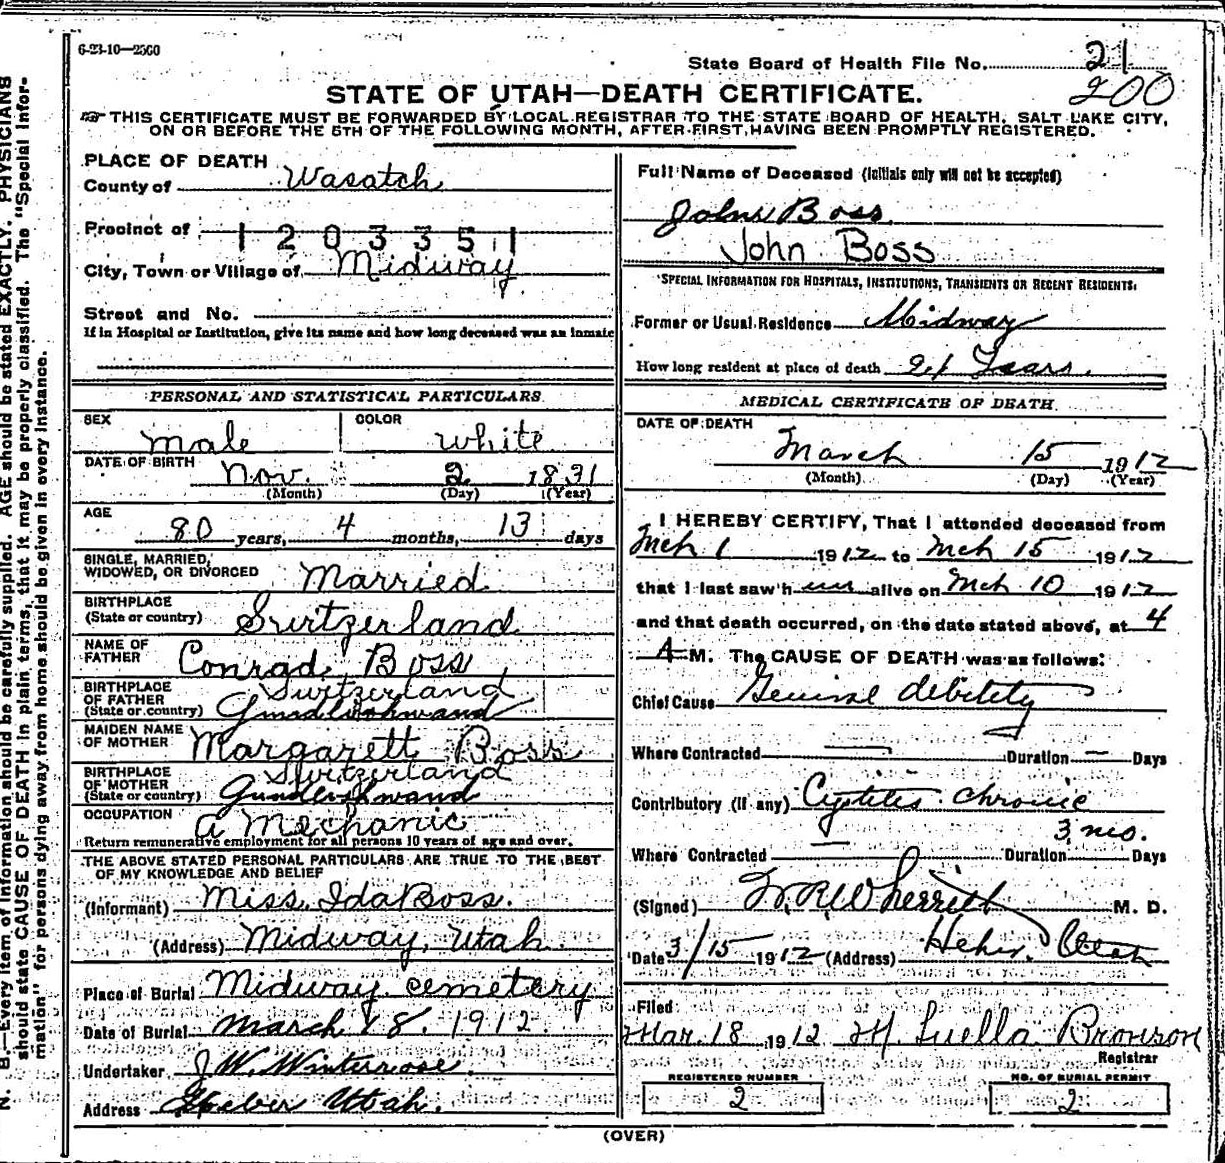 6-23-10—2500
State Board of Health File No. 21
200
STATE OF UTAH—DEATH CERTIFICATE.
THIS CERTIFICATE MUST BE FORWARDED BY LOCAL REGISTRAR TO THE STATE BOARD OF HEALTH, SALT LAKE CITY,
ON OR BEFORE THE 5TH OF THE FOLLOWING MONTH, AFTER FIRST HAVING BEEN PROMPTLY REGISTERED.
PLACE OF DEATH
County of Wasatch
Precinct of 1203351
City, Town or Village of Midway
Street and No.
If in Hospital or Institution, give its name and how long deceased was an inmate
PERSONAL AND STATISTICAL PARTICULARS
SEX male COLOR white
DATE OF BIRTH Nov. 2 1831
(Month) (Day) (Year)
AGE
80 years, 4 months, 13 days
SINGLE, MARRIED,
WIDOWED, OR DIVORCED Married
BIRTHPLACE
(State or country) Switzerland
NAME OF
FATHER Conrad Boss
BIRTHPLACE Switzerland
OF FATHER
(State or country)
MAIDEN NAME
OF MOTHER Margarett Boss
BIRTHPLACE Switzerland
OF MOTHER
(State or country)
OCCUPATION
a Mechanic
Return remunerative employment for all persons 10 years of age and over.
THE ABOVE STATED PERSONAL PARTICULARS ARE TRUE TO THE BEST
OF MY KNOWLEDGE AND BELIEF
(Informant) Miss. Ida Boss.
(Address) Midway, Utah
Place of Burial Midway cemetery
Date of Burial March 18. 1912
Undertaker J. W. Winterrose.
Address Heber Utah.
Full Name of Deceased (Initials only will not be accepted)
John Boss
John Boss
SPECIAL INFORMATION FOR HOSPITALS, INSTITUTIONS, TRANSIENTS OR RECENT RESIDENTS.
Former or Usual Residence Midway
How long resident at place of death Years.
MEDICAL CERTIFICATE OF DEATH
DATE OF DEATH
March 15 1912
(Month) (Day) (Year)
I HEREBY CERTIFY, That I attended deceased from
Mch 1 1912 to Mch 15 1912
that I last saw h im alive on Mch 10 1912
and that death occurred, on the date stated above, at 4
A M. The CAUSE OF DEATH was as follows:
Chief Cause debility
Where Contracted Duration — Days
Contributory (if any) Cystitis chronic
3 mo.
Where Contracted Duration Days
(Signed) W. R. Wherritt M. D.
Date 3/15 1912 (Address) Heber, Utah
Filed
Mar. 18 1912 M. Luella Bronson
Registrar
REGISTERED NUMBER
2
NO. OF BURIAL PERMIT
2
(OVER)
N. B.—Every item of information should be carefully supplied. AGE should be stated EXACTLY. PHYSICIANS
should state CAUSE OF DEATH in plain terms, that it may be properly classified. The "Special Infor-
mation" for persons dying away from home should be given in every instance.